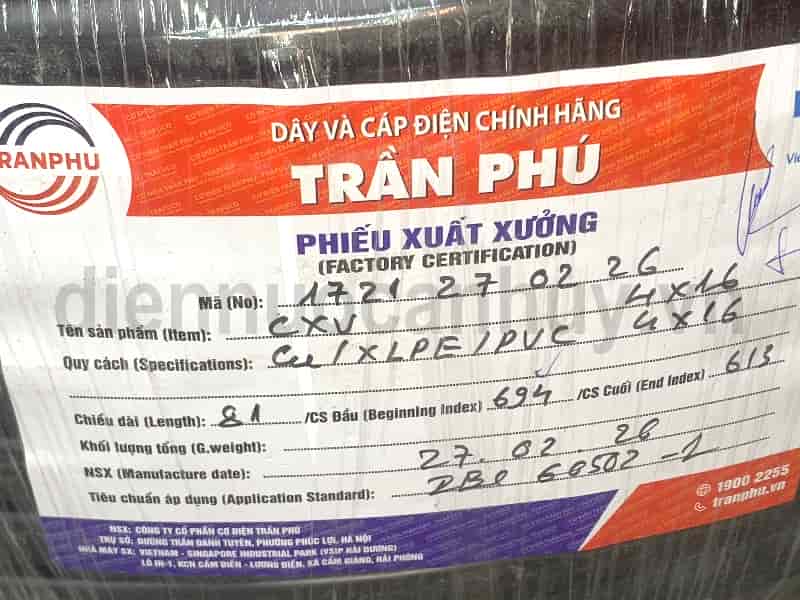 TRANPHU
DÂY VÀ CÁP ĐIỆN CHÍNH HÃNG
TRẦN PHÚ
PHIẾU XUẤT XƯỞNG
(FACTORY CERTIFICATION)
Mã (No): 1721 27 02 26
Tên sản phẩm (Item): CXV 4x16
Quy cách (Specifications): Cu/XLPE/PVC 4x16
Chiều dài (Length): 81 /CS Đầu (Beginning Index) 694 /CS Cuối (End Index) 613
Khối lượng tổng (G.weight):
NSX (Manufacture date): 27.02.26
Tiêu chuẩn áp dụng (Application Standard): 60502-1
1900 2255
tranphu.vn
NSX: CÔNG TY CỔ PHẦN CƠ ĐIỆN TRẦN PHÚ
TRỤ SỞ: ĐƯỜNG TRẦN DANH TUYÊN, PHƯỜNG PHÚC LỢI, HÀ NỘI
NHÀ MÁY SX: VIETNAM - SINGAPORE INDUSTRIAL PARK (VSIP HẢI DƯƠNG)
LÔ IN-1, KCN CẨM ĐIỀN - LƯƠNG ĐIỀN, XÃ CẨM GIÀNG, HẢI PHÒNG